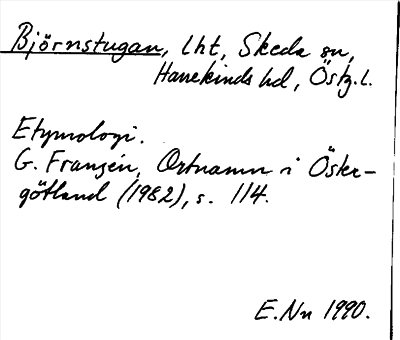 Björnstugan, lht, Skeda sn,
Hanekinds hd, Östg.l.
Etymologi.
G. Franzén, Ortnamn i Öster-
götland (1982), s. 114.
E.Nn 1990.